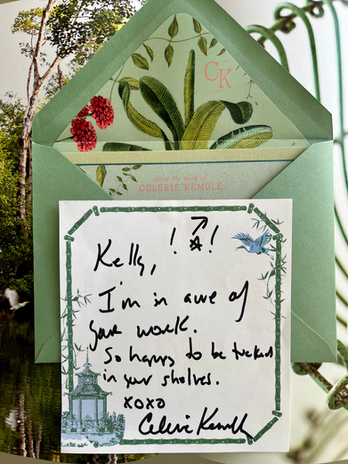 CK
FROM THE DESK OF
CELERIE KEMBLE
Kelly, ! !
I'm in awe of
your work.
So happy to be tucked
in your shelves.
XOXO
Celerie Kemble